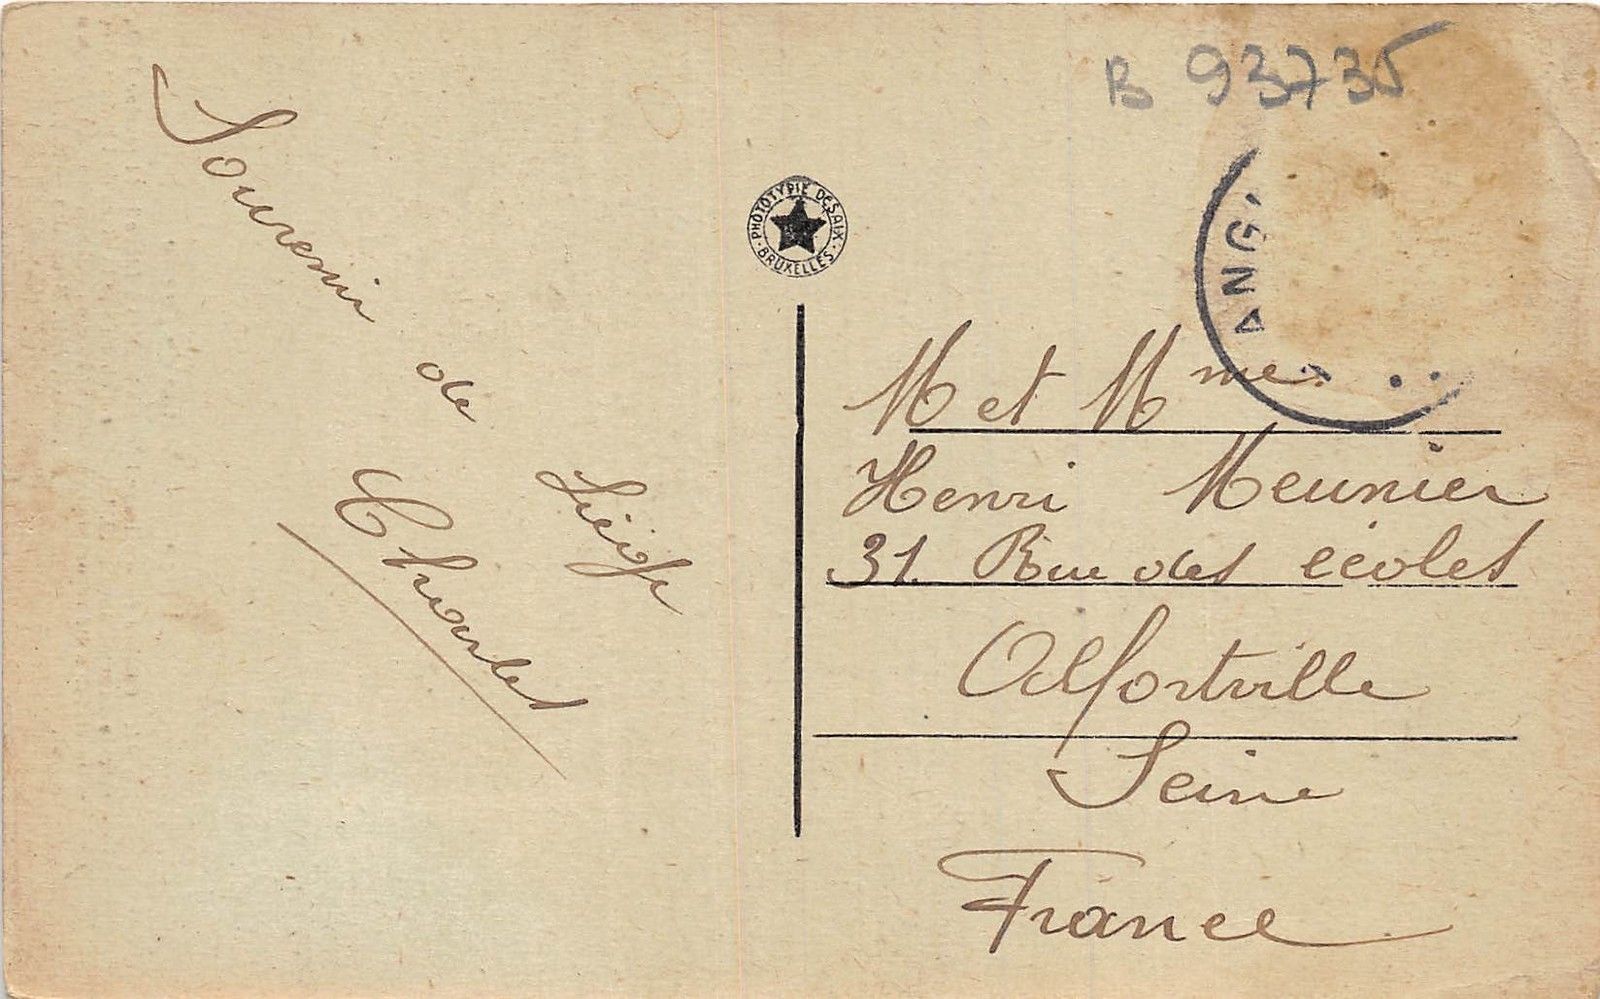 B 93735
Souvenir de
Liège
Charles
PHOTOTYPIE DESAIX
BRUXELLES
ANG
M et Mme
Henri Meunier
31. Rue des écoles
Alfortville
Seine
France